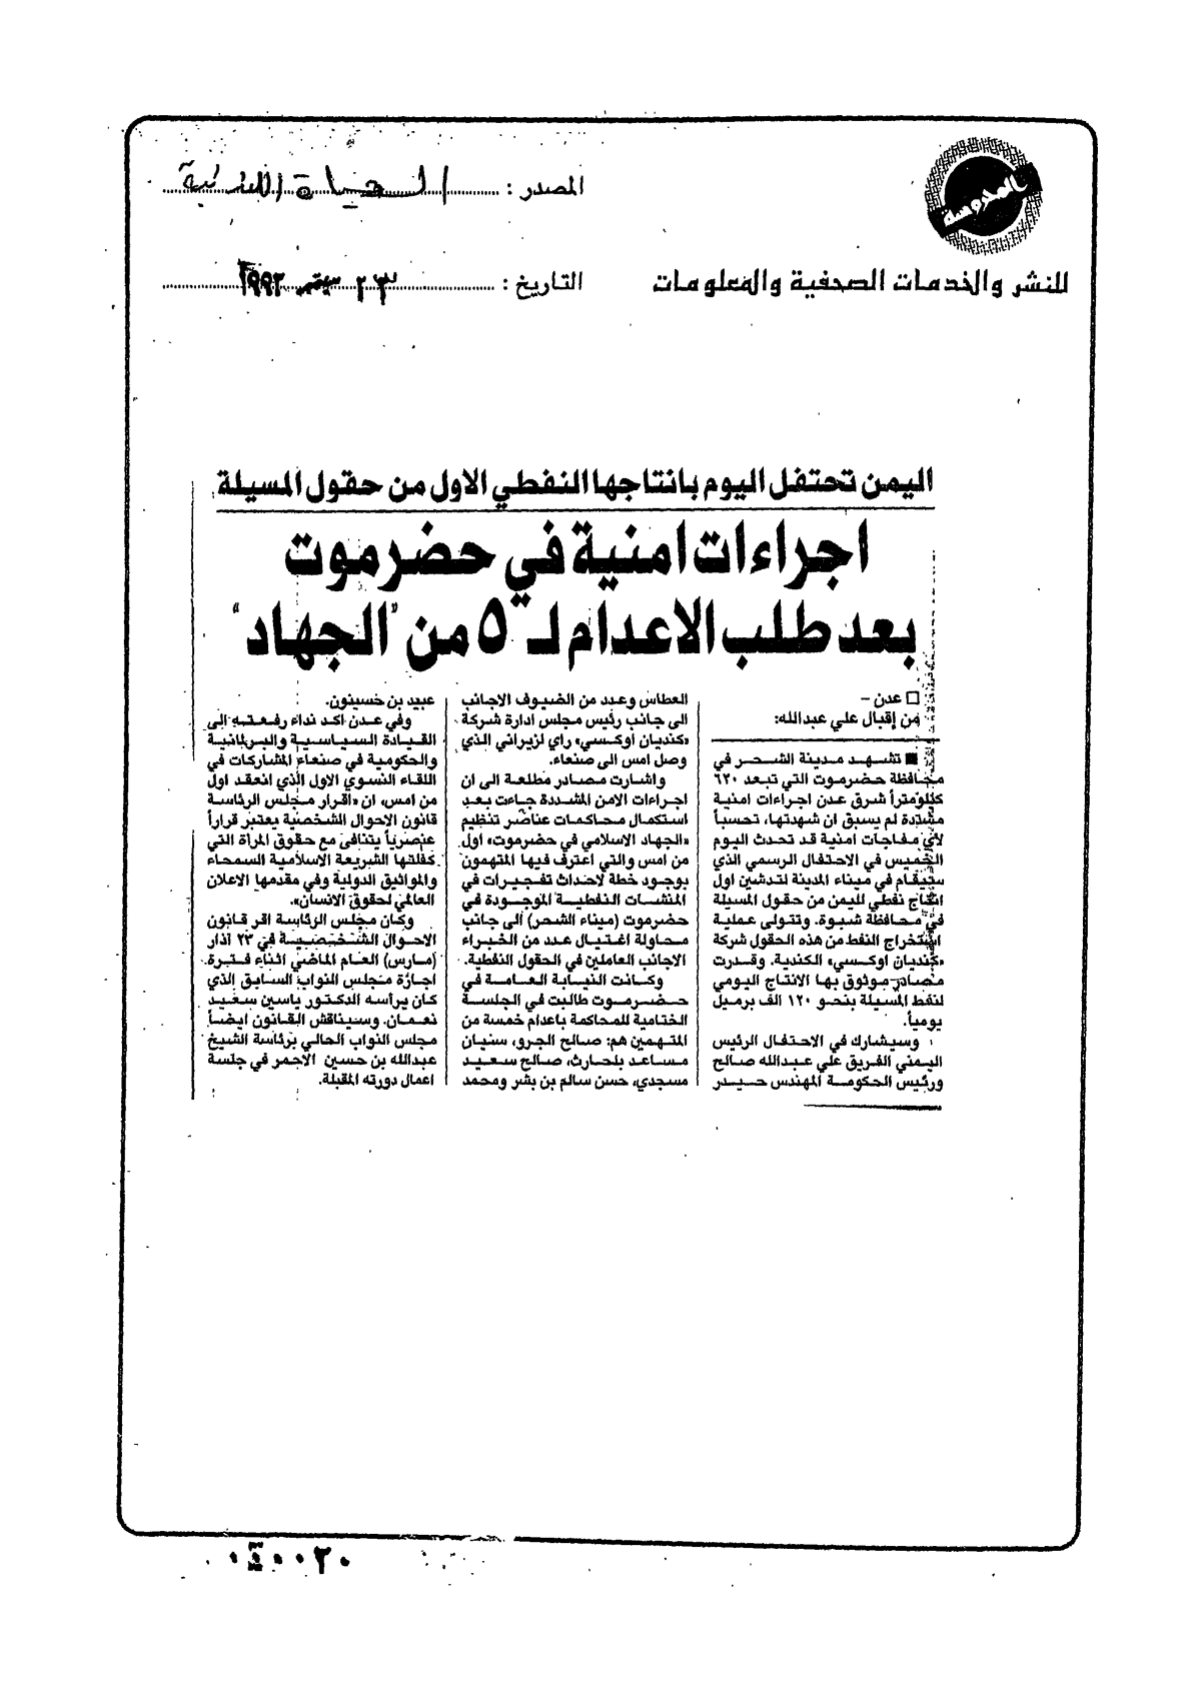 المحروسة
للنشر والخدمات الصحفية والمعلومات
المصدر : الحياة اللندنية
التاريخ : ٢٣ سبتمبر ١٩٩٣
اليمن تحتفل اليوم بانتاجها النفطي الاول من حقول المسيلة
اجراءات امنية في حضرموت
بعد طلب الاعدام لـ ٥ من "الجهاد"
□ عدن –
من إقبال علي عبدالله:
■ تشهد مدينة الشحر في
محافظة حضرموت التي تبعد ٦٢٠
كيلومتراً شرق عدن اجراءات امنية
مشددة لم يسبق ان شهدتها، تحسباً
لأي مفاجات امنية قد تحدث اليوم
الخميس في الاحتفال الرسمي الذي
سيقام في ميناء المدينة لتدشين اول
انتاج نفطي لليمن من حقول المسيلة
في محافظة شبوة. وتتولى عملية
استخراج النفط من هذه الحقول شركة
«كنديان اوكسي» الكندية. وقدرت
مصادر موثوق بها الانتاج اليومي
لنفط المسيلة بنحو ١٢٠ الف برميل
يومياً.
وسيشارك في الاحتفال الرئيس
اليمني الفريق علي عبدالله صالح
ورئيس الحكومة المهندس حيدر
العطاس وعدد من الضيوف الاجانب
الى جانب رئيس مجلس ادارة شركة
«كنديان أوكسي» راي لزيراني الذي
وصل امس الى صنعاء.
واشارت مصادر مطلعة الى ان
اجراءات الامن المشددة جاءت بعد
استكمال محاكمات عناصر تنظيم
«الجهاد الاسلامي في حضرموت» اول
من امس والتي اعترف فيها المتهمون
بوجود خطة لاحداث تفجيرات في
المنشات النفطية الموجودة في
حضرموت (ميناء الشحر) الى جانب
محاولة اغتيال عدد من الخبراء
الاجانب العاملين في الحقول النفطية.
وكانت النيابة العامة في
حضرموت طالبت في الجلسة
الختامية للمحاكمة باعدام خمسة من
المتهمين هم: صالح الجرو، سنيان
مساعد بلحارث، صالح سعيد
مسجدي، حسن سالم بن بشر ومحمد
عبيد بن خسينون.
وفي عدن اكد نداء رفعته الى
القيادة السياسية والبرلمانية
والحكومية في صنعاء المشاركات في
اللقاء النسوي الاول الذي انعقد اول
من امس، ان «اقرار مجلس الرئاسة
قانون الاحوال الشخصية يعتبر قراراً
عنصرياً يتنافى مع حقوق المرأة التي
كفلتها الشريعة الاسلامية السمحاء
والمواثيق الدولية وفي مقدمها الاعلان
العالمي لحقوق الانسان».
وكان مجلس الرئاسة اقر قانون
الاحوال الشخصية في ٢٣ اذار
(مارس) العام الماضي اثناء فترة
اجازة مجلس النواب السابق الذي
كان يرأسه الدكتور ياسين سعيد
نعمان. وسيناقش القانون ايضاً
مجلس النواب الحالي برئاسة الشيخ
عبدالله بن حسين الاحمر في جلسة
اعمال دورته المقبلة.